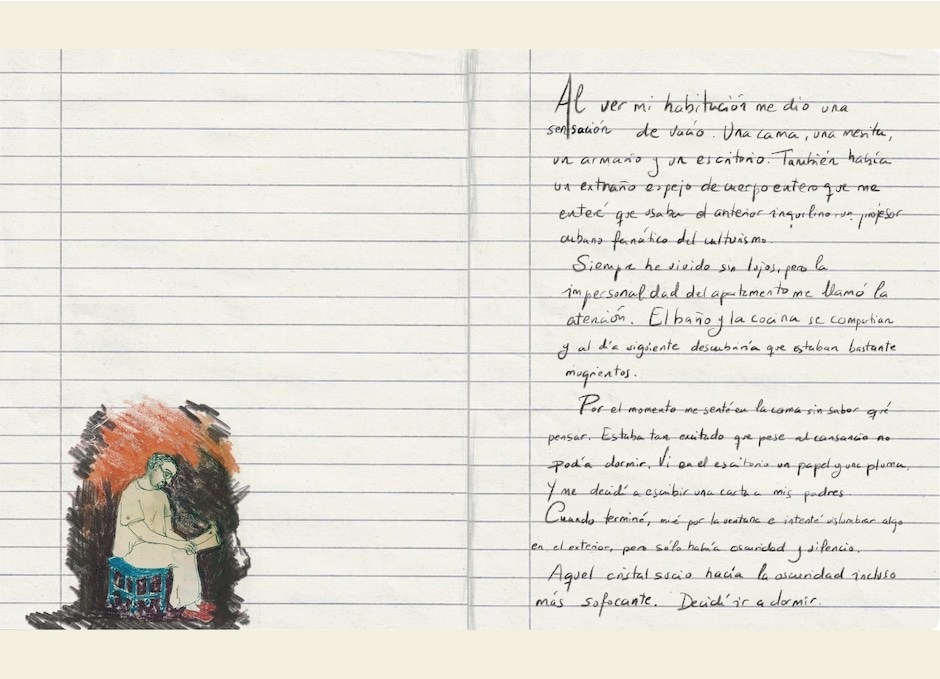 Al ver mi habitación me dio una
sensación de vacío. Una cama, una mesita,
un armario y un escritorio. También había
un extraño espejo de cuerpo entero que me
enteré que usaba el anterior inquilino, un profesor
cubano fanático del culturismo.
Siempre he vivido sin lujos, pero la
impersonalidad del apartamento me llamó la
atención. El baño y la cocina se compartían
y al día siguiente descubriría que estaban bastante
mugrientos.
Por el momento me senté en la cama sin saber qué
pensar. Estaba tan excitado que pese al cansancio no
podía dormir. Vi en el escritorio un papel y una pluma.
Y me decidí a escribir una carta a mis padres.
Cuando terminé, miré por la ventana e intenté vislumbrar algo
en el exterior, pero sólo había oscuridad y silencio.
Aquel cristal sucio hacía la oscuridad incluso
más sofocante. Decidí ir a dormir.